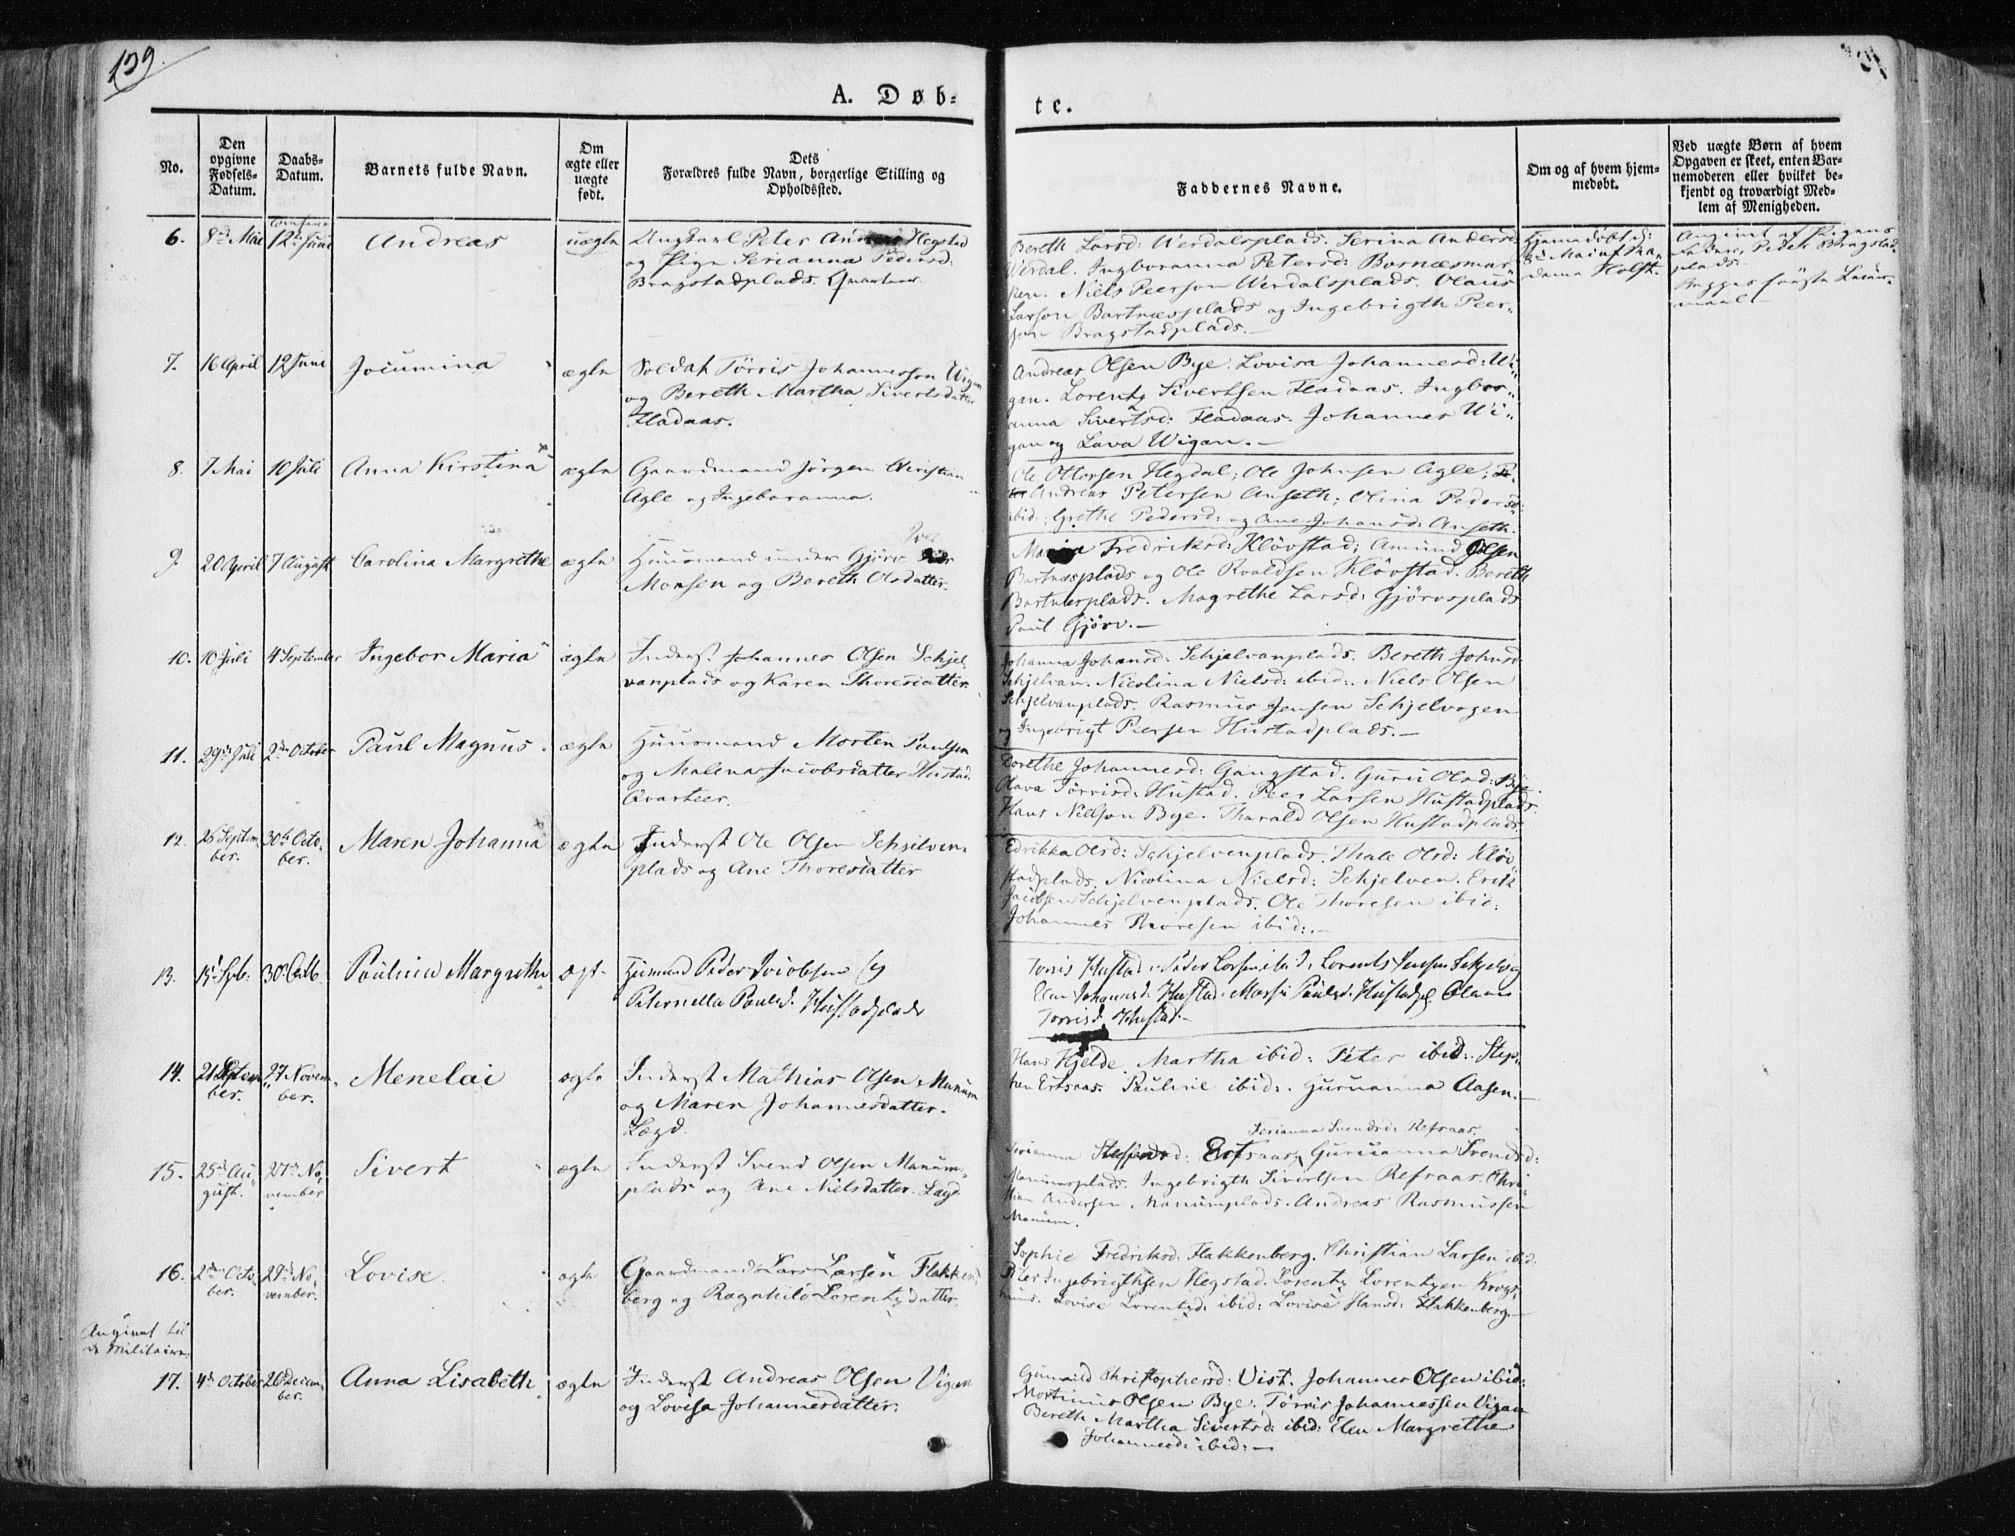 139.
A. Døb-
te.
No.
Den opgivne Fødsels-Datum.
Daabs-Datum.
Barnets fulde Navn.
Om ægte eller uægte født.
Dets Forældres fulde Navn, borgerlige Stilling og Opholdssted.
Faddernes Navne.
Om og af hvem hjem-medøbt.
Ved uægte Børn af hvem Opgaven er skeet, enten Bar-nemoderen eller hvilket be-kjendt og troværdigt Med-lem af Menigheden.
6. 8de Mai 12te Juni Andreas uægte Ungkarl Peter Hegstad
og Pige Serianna Pedersd:
Bragstadplads.
Bereth Larsd: Werdalsplads. Serina Andersd:
Werdal. Ingboranna Petersd: Bornæsmar-
ken. Niels Peerson Werdalsplads. Olaus
Larson Bartnæsplads og Ingebrigth Peer-
son Bragstadplads.
Hjemmedøbt d:
8de Mai af Ma-
dame Holst.
Angivet af Pigens
Fader, Peder Bragstad-
plads.
7. 16 April 12 Juni Jocumina ægte Soldat Törris Johannesson Wigan
og Bereth Martha Sivertsdatter
Hadaas.
Andreas Olsen Bye. Lovisa Johannesd: Wi-
gan. Lorentz Sivertsen Hadaas. Ingbor-
anna Sivertsd: Hadaas. Johannes Wi-
gan og Lava Wigan.
8. 7 Mai 10 Juli Anna Kirstina ægte Gaardmand Jörgen Christian
Agle og Ingeboranna.
Ole Ottersen Hegdal; Ole Johnsen Agle;
Andreas Petersen Anseth; Olina Pedersd:
ibid.; Grethe Pedersd: og Ane Johansd: Anseth.
9. 20 April 7 August Carolina Margrethe ægte Huusmand under Gjörv
Monsen og Bereth Olsdatter.
Maria Fredriksd: Klövstad; Amund Olsen
Bartnæsplads og Ole Roaldsen Klövstad. Bereth
Bartnæsplads. Magrethe Larsd: Gjörvsplads
Paul Gjörv.
10. 10 Juli 4 September Ingebor Maria ægte Inderst Johannes Olsen Schjel-
vanplads og Karen Thoresdatter.
Johanna Johansd: Schjelvanplads. Bereth Johnsd:
Schjelvan. Nicolina Nielsd: ibid:. Niels Olsen
Schjelvanplads. Rasmus Jensen Schjelvagen
og Ingebrigt Peersen Hustadplads.
11. 29de Juli 2den October Paul Magnus ægte Huusmand Morten Paulsen
og Malena Jacobsdatter Hustad.
Qvarteer.
Dorethe Johannesd: Gangstad. Guru Olsd: Bye.
Olava Törrisd: Hustad. Peer Larsen Hustadplads.
Hans Nielson Bye. Tharald Olsen Hustadplads.
12. 26 Septem-
ber. 30te Octo-
ber. Maren Johanna ægte Inderst Ole Olsen Schjelven-
plads og Ane Thoresdatter
Edrikka Olsd: Schjelvenplads. Thale Olsd: Klöv-
stadplads. Nicolina Nielsd: Schjelven. Erik
Jacobsen Schjelvenplads. Ole Thoresen ibid:
Johannes Thoresen ibid:.
13. Paulina Margrethe ægt. Huusmand Peder Jacobsen og
Peternella Paulsd. Hustadplads
Torris Hustad. Peder Larsen ibid: Lorents Jensen
Johannesd: Hustad. Paulsd. Hustadpl
Torrisd. Hustad.
14. 21 Septem-
ber. 27 Novem-
ber. Menelai ægte Inderst Mathias Olsen Manum
og Maren Johannesdatter.
Lægd.
Hans Hjelde. Martha ibid: Peter ibid:. Step-
hen Ertsaas. Pauline ibid:. Guruanna Aasen.
15. 25de Au-
gust. 27de No-
vember Sivert ægte Inderst Svend Olsen Manum-
plads og Ane Nielsdatter. Lægd
Serianna Svendsd: Refsaas.
Ertsaas. Guruanna Svendsd:
Manumsplads. Ingebrigth Sivertsen Refsaas. Chri-
stian Andersen Manumplads. Andreas Rasmussen
Manum.
16. 2den Octo-
ber. 27de No-
vember. Lovise. ægte Gaardmand Lars Larsen Flakken-
berg og Ragnhild Lorentzdatter.
Sophie Fredriksd: Flakkenberg. Christian Larsen ibid.
Peter Ingebrigthsen Hegstad. Lorentz Lorentzen Krogs-
Lovise Lorentzd: ibid: Lovise Hansd: Flakkenberg.
Angivet til
de Militaire.
17. 4de October 26 Decem-
ber. Anna Lisabeth ægte Inderst Andreas Olsen Vigan
og Lovisa Johannesdatter.
Gunnild Christophersd: Vist. Johannes Olsen ibid:
Mortinus Olsen Bye. Törris Johannessen Vigan
Bereth Martha Sivertsd: ibid: Elen Margrethe
Johannesd: ibid: